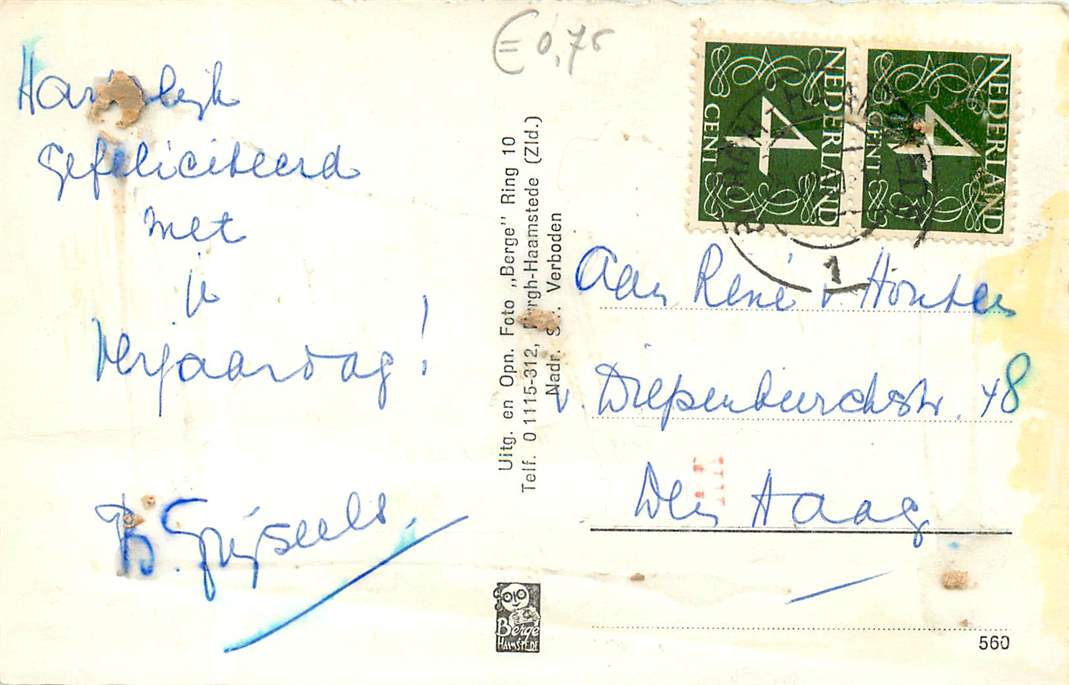 Hartelijk
gefeliciteerd
met
je
Verjaardag!
€ 0,75
NEDERLAND
4
CENT
NEDERLAND
4
CENT
1
Uitg. en Opn. Foto „Berge” Ring 10
Telf. 0 1115-312, Burgh-Haamstede (Zld.)
Nadr. Verboden
Aan René v Houten
v. Diepenburchstr. 48
Den Haag
FOTO
Berge
HAAMSTEDE
560